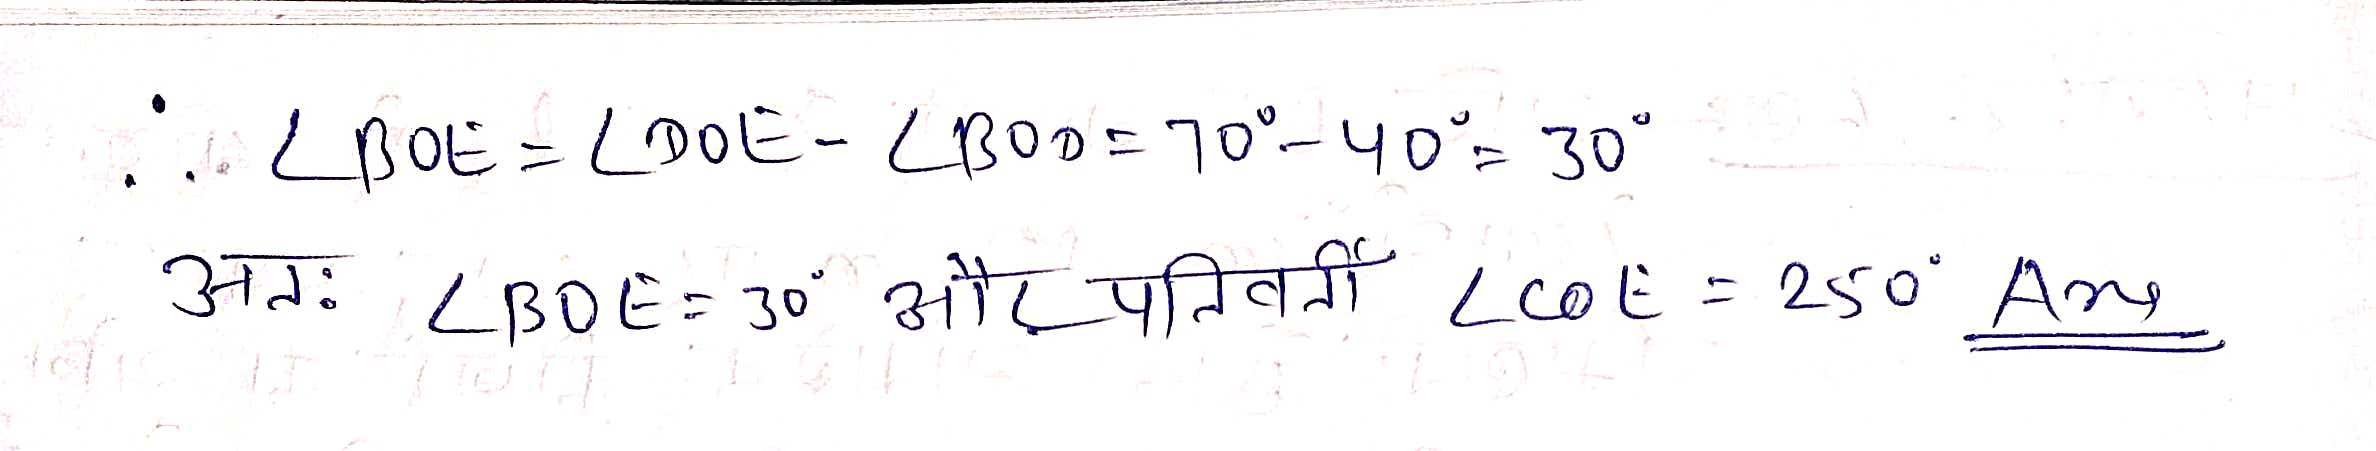 ∴ ∠BOE = ∠DOE - ∠BOD = 70° - 40° = 30°
अतः ∠BOE = 30° और पतिवर्ती ∠COE = 250° Ans